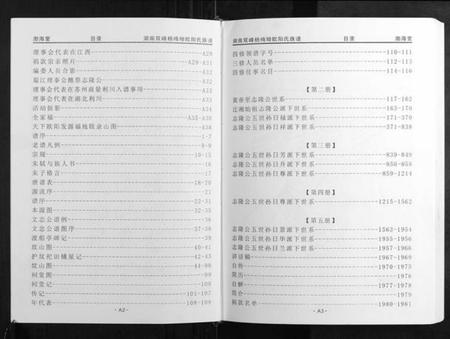 渤海堂 目录 湖南双峰杨鸣坳欧阳氏族谱
理事会代表在江西 A28
捐款家亲照片 A29-A31
编委人员合影
理事会代表在苏州商量利川入谱事项
理事会代表在湖北利川
活动掠影
全家福 A35-A38
天下欧阳发源福地欧余山图
谱序 1-7
老谱凡例 8-9
宗规 10-15
朱轼与族人书 16
朱子格言 17
世谱表 18-20
源流序 21
谱序 22-31
本源图 32-35
文忠公谱例 36
文忠公谱图序 37-38
泷相亭碑记 39
坟山图 40-41
护坟祀田铺屋记 42-43
坟山图 44-91
祠堂图
祠堂记
传记 101-107
年代表 108-109
- A2 -
湖南双峰杨鸣坳欧阳氏族谱 目录 渤海堂
四修领谱字号 110-111
三修人员名单 112-113
四修任事名目 114-116
【第二册】
黄帝至志隆公世系 117-162
迁湘始祖志隆公派下世系 163-170
志隆公五世孙日绿派下世系 171-370
志隆公五世孙日祥派下世系 371-838
【第三册】
志隆公五世孙日芳派下世系 839-849
志隆公五世孙日升派下世系 850-858
志隆公五世孙日尊派下世系 859-1214
【第四册】
志隆公五世孙日尊派下世系 1215-1562
【第五册】
志隆公五世孙日景派下世系 1563-1954
志隆公五世孙日华派下世系 1955-1956
志隆公五世孙日兰派下世系 1957-1966
讲话稿 1967-1969
自传 1970-1975
简历 1976
自解 1977-1978
简介 1979
捐款名单 1980-1981
- A3 -